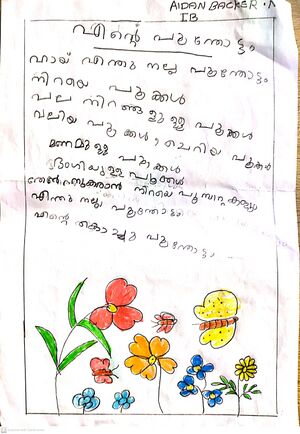 AIDAN BACKER. A
IB
എന്റെ പൂന്തോട്ടം
ഹായ് എന്തു നല്ല പൂന്തോട്ടം
നിറയെ പൂക്കൾ
പല നിറങ്ങളുള്ള പൂക്കൾ
വലിയ പൂക്കൾ, ചെറിയ പൂക്കൾ
മണമുള്ള പൂക്കൾ
ഭംഗിയുള്ള പൂക്കൾ
തേൻ നുകരാൻ നിറയെ പൂമ്പാറ്റകളും
എന്തു നല്ല പൂന്തോട്ടം
എന്റെ കൊച്ചു പൂന്തോട്ടം